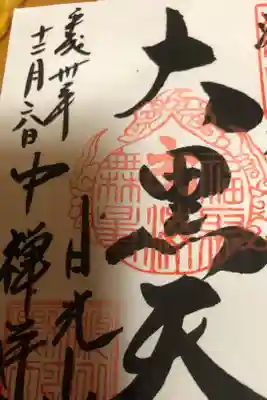 大黒天
日光山
平成卅年
十二月六日
中禅寺